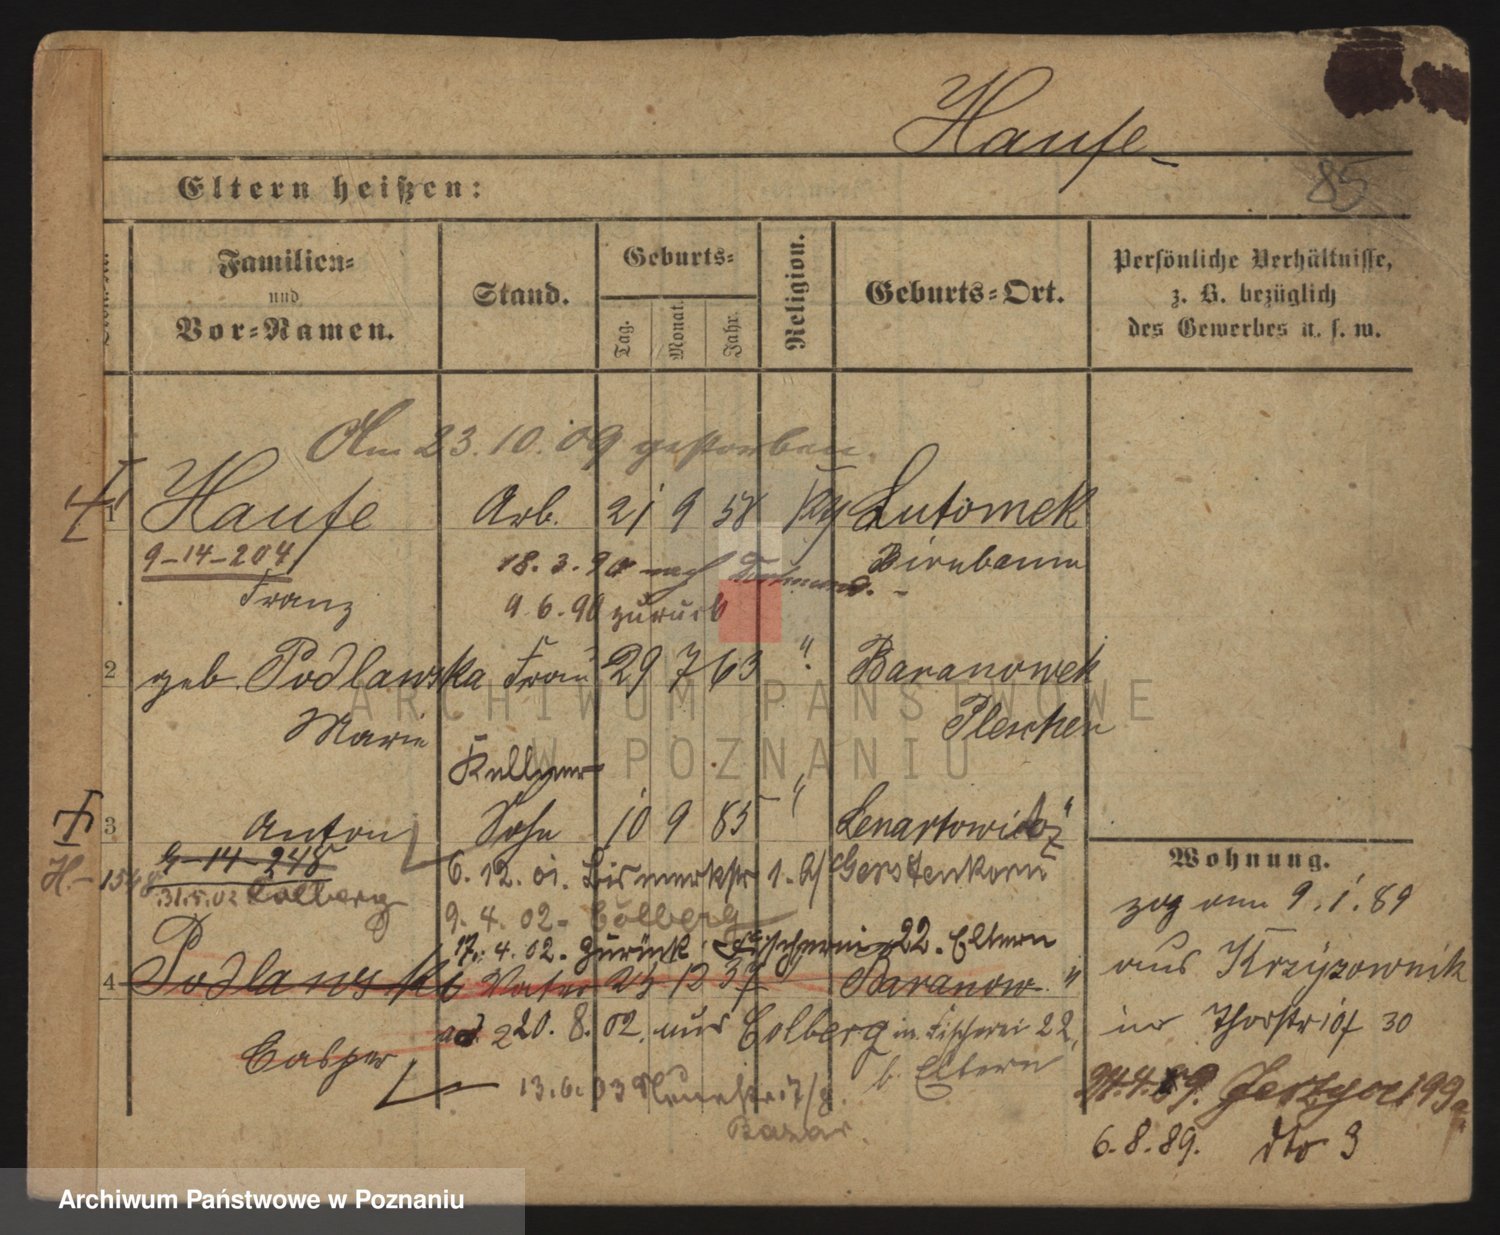 Haufe
85
Eltern heißen:
Familien- und Vor-Namen.
Stand.
Geburts-
Tag. Monat. Jahr.
Religion.
Geburts-Ort.
Persönliche Verhältnisse, z. B. bezüglich des Gewerbes u. s. w.
Am 23.10.09 gestorben.
1 Haufe Arb. 21 9 58 Lutomek
9-14-204 18.3.90 nach Birnbaum
Franz 9.6.90 zurück
2 geb. Podlawska Frau 29 7 63 " Baranowek
Marie Pleschen
Kellner
3 Anton Sohn 10 9 85 " Lenartowitz "
9-14-248 6.12.01. Bismarkstr 1. b/ Gerstenkorn
H.-1548
31.5.02 Colberg
9.4.02- Colberg
17.4.02. zurück Fischerei 22. Eltern
4 Podlawski Vater 23 12 37 Baranow "
Casper ad 2 20.8.02. aus Colberg in Fischerei 22,
b. Eltern
13.6.03
Bazar.
Wohnung.
zog am 9.1.89
aus Krzyzownik
in 30
24.4.89. Jerzyce 199
6.8.89. dto 3
ARCHIWUM PAŃSTWOWE
W POZNANIU
Archiwum Państwowe w Poznaniu